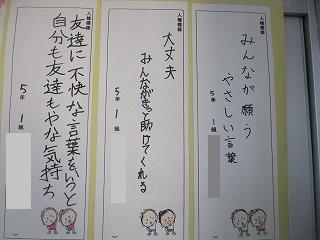 人権標語
みんなが願う
やさしい言葉
5年 1組
人権標語
大丈夫
みんながきっと助けてくれる
5年 1組
人権標語
友達に不快な言葉をいうと
自分も友達もやな気持ち
5年 1組